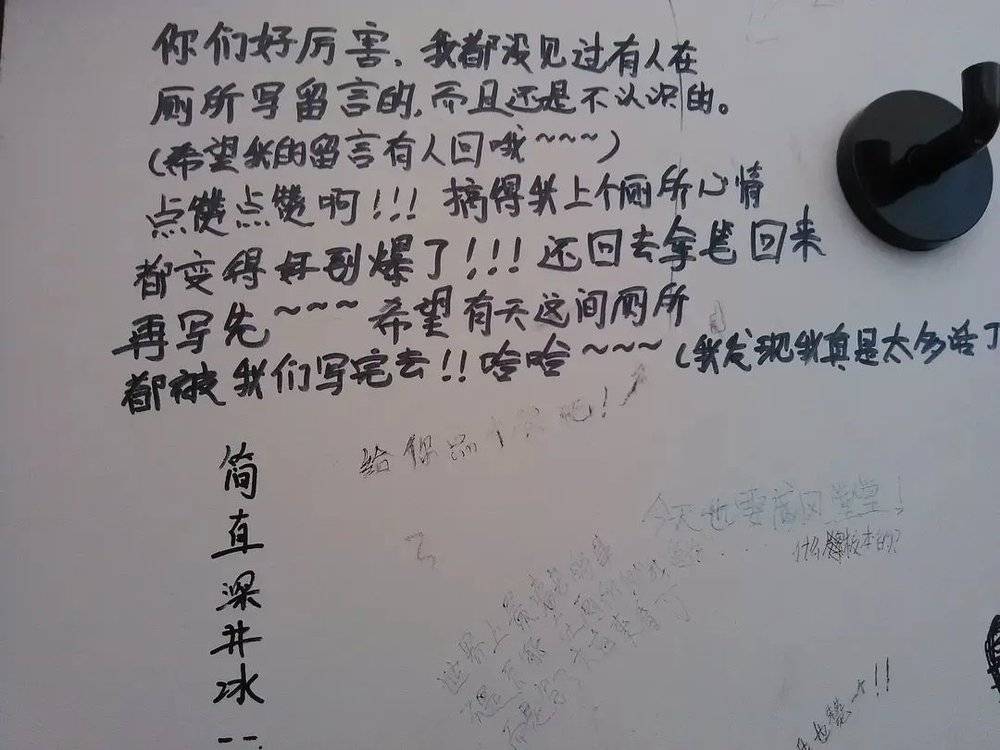 你们好厉害，我都没见过有人在
厕所写留言的，而且还是不认识的。
(希望我的留言有人回哦~~~)
点赞点赞啊!!! 搞得我上个厕所心情
都变得好到爆了!!!还回去拿笔回来
再写先~~~希望有天这间厕所
都被我们写完去!!哈哈~~~(我发现我真是太多话了
简直深井冰--
给你
今天也要威风堂堂!
什么版本的?
世界上最